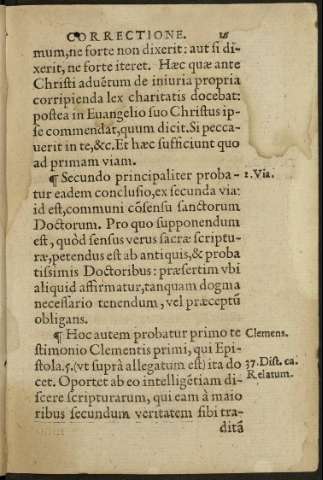 CORRECTIONE. 18
mum, ne forte non dixerit: aut si di-
xerit, ne forte iteret. Hæc quæ ante
Christi aduẽtum de iniuria propria
corripienda lex charitatis docebat:
postea in Euangelio suo Christus ip-
se commendat, quum dicit. Si pecca-
uerit in te, &c. Et hæc sufficiunt quo
ad primam viam.
¶ Secundo principaliter proba- 2. Via.
tur eadem conclusio, ex secunda via:
id est, communi cõsensu sanctorum
Doctorum. Pro quo supponendum
est, quòd sensus verus sacræ scriptu-
ræ, petendus est ab antiquis, & proba
tissimis Doctoribus: præsertim vbi
aliquid affirmatur, tanquam dogma
necessario tenendum, vel præceptũ
obligans.
¶ Hoc autem probatur primo te Clemens.
stimonio Clementis primi, qui Epi-
stola. 5. (vt suprà allegatum est) ita do 37. Dist. ca.
cet. Oportet ab eo intelligẽtiam di- Relatum.
scere scripturarum, qui eam à maio
ribus secundum veritatem sibi tra-
ditã